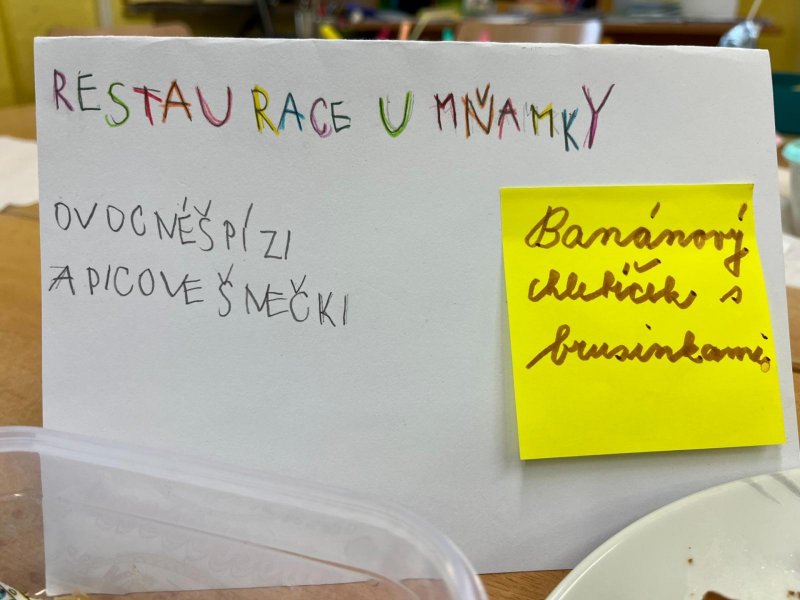 RESTAURACE U MŇAMKY
OVOCNÉŠPÍZI
APICOVE ŠNEČKI
Banánový
chlebíček s
brusinkami